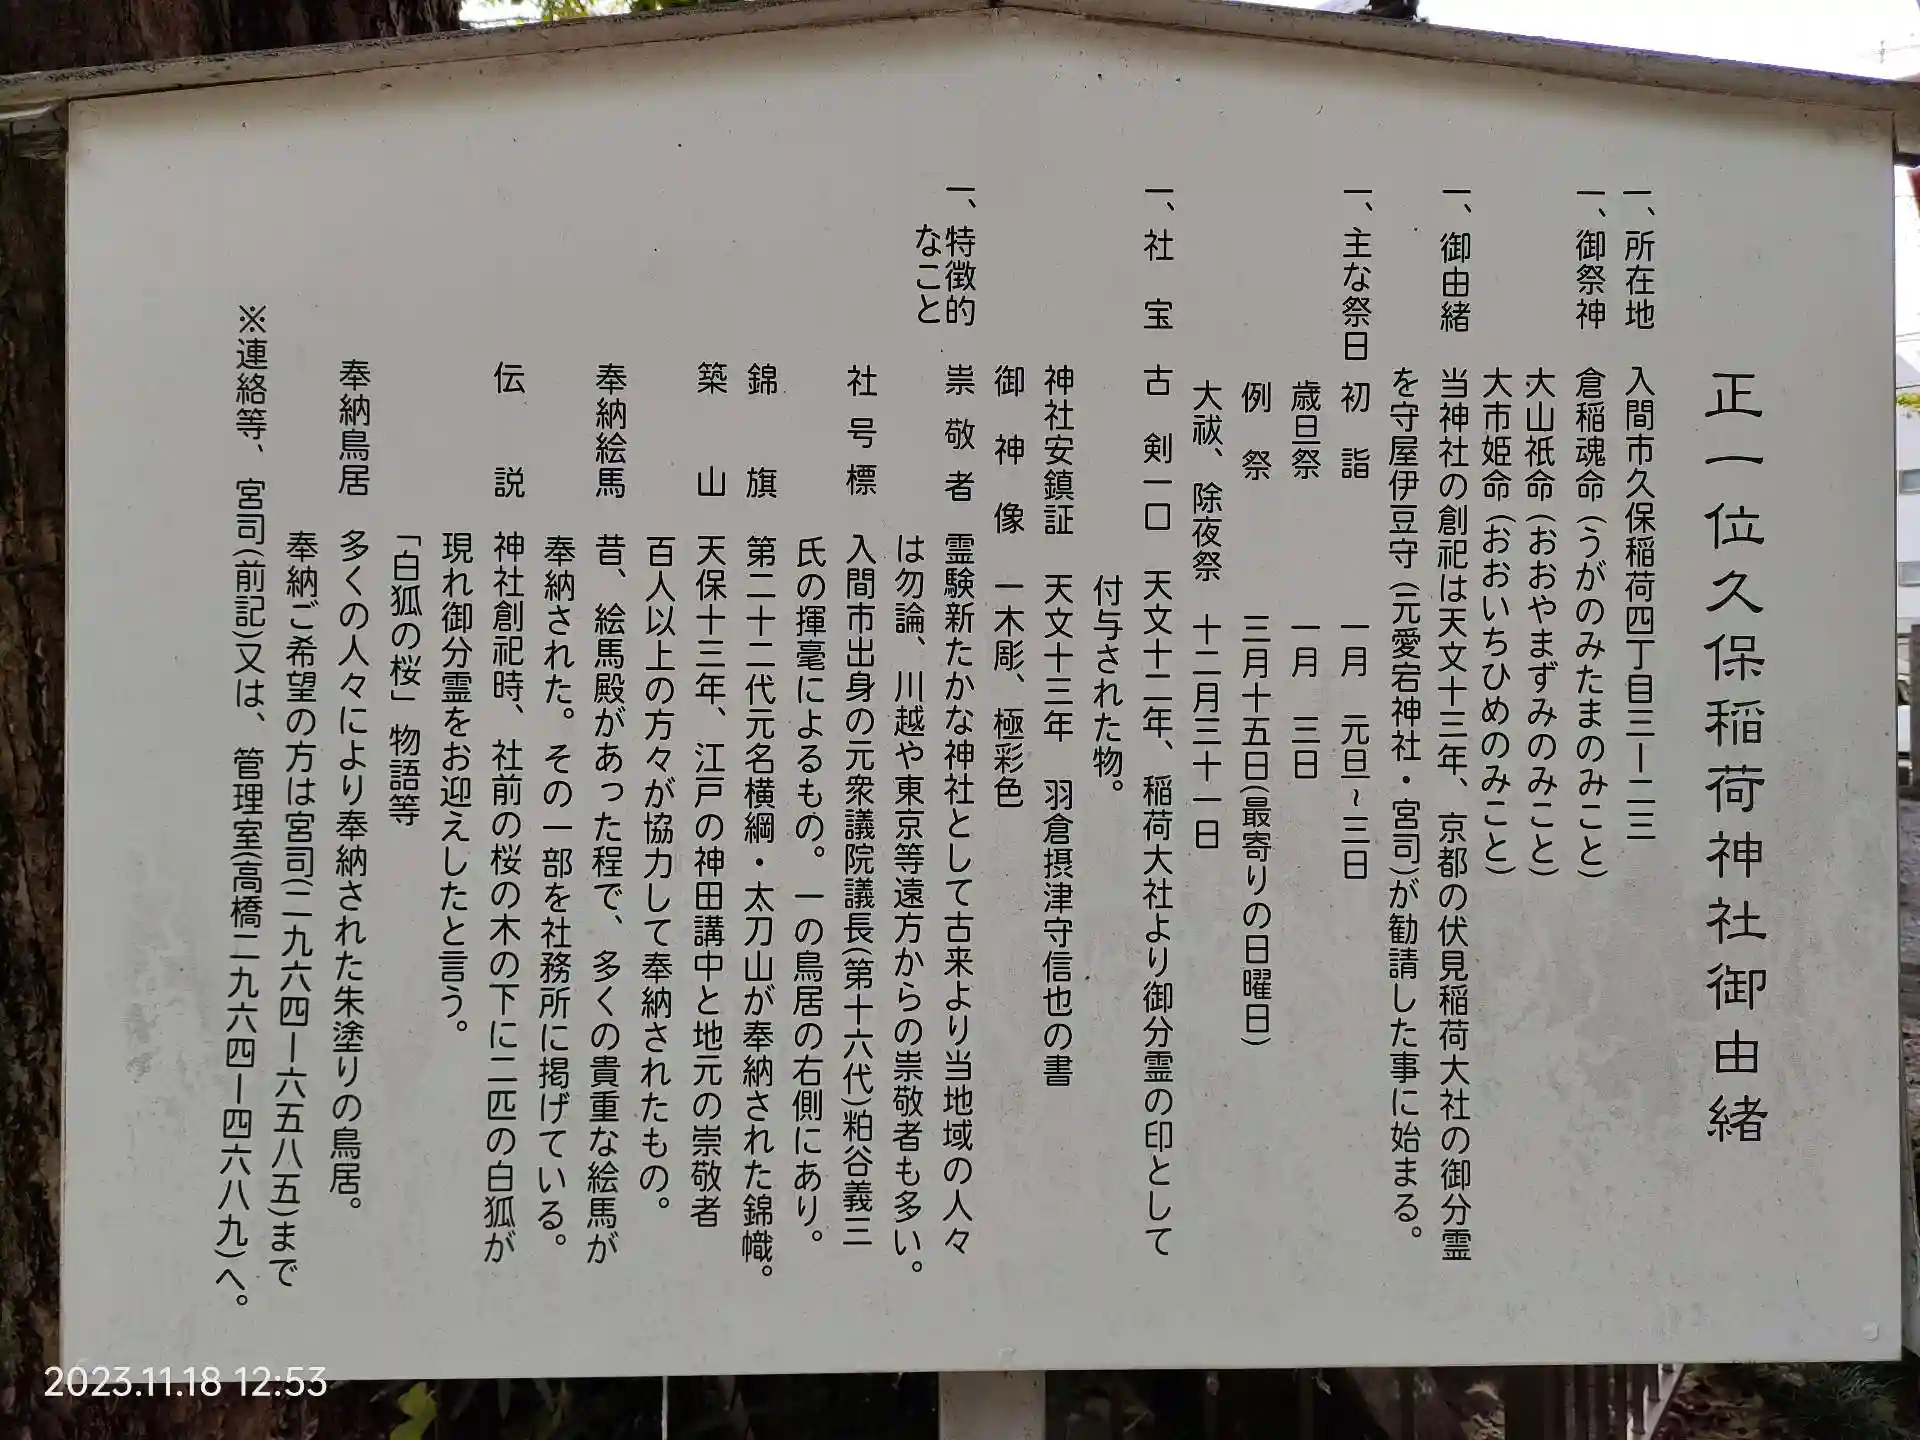 正一位久保稲荷神社御由緒
一、所在地 入間市久保稲荷四丁目三ー二三
一、御祭神 倉稲魂命(うがのみたまのみこと)
大山祇命(おおやまずみのみこと)
大市姫命(おおいちひめのみこと)
一、御由緒 当神社の創祀は天文十三年、京都の伏見稲荷大社の御分霊
を守屋伊豆守(元愛宕神社・宮司)が勧請した事に始まる。
一、主な祭日 初詣 一月 元旦~三日
歳旦祭 一月 三日
例祭 三月十五日(最寄りの日曜日)
大祓、除夜祭 十二月三十一日
一、社宝 古剣一口 天文十二年、稲荷大社より御分霊の印として
付与された物。
神社安鎮証 天文十三年 羽倉摂津守信也の書
御神像 一木彫、極彩色
一、特徴的
なこと
祟敬者 霊験新たかな神社として古来より当地域の人々
は勿論、川越や東京等遠方からの祟敬者も多い。
社号標 入間市出身の元衆議院議長(第十六代)粕谷義三
氏の揮毫によるもの。一の鳥居の右側にあり。
錦旗 第二十二代元名横綱・太刀山が奉納された錦幟。
築山 天保十三年、江戸の神田講中と地元の崇敬者
百人以上の方々が協力して奉納されたもの。
奉納絵馬 昔、絵馬殿があった程で、多くの貴重な絵馬が
奉納された。その一部を社務所に掲げている。
伝説 神社創祀時、社前の桜の木の下に二匹の白狐が
現れ御分霊をお迎えしたと言う。
「白狐の桜」物語等
奉納鳥居 多くの人々により奉納された朱塗りの鳥居。
奉納ご希望の方は宮司(二九六四ー六五八五)まで
※連絡等、宮司(前記)又は、管理室(高橋二九六四ー四六八九)へ。
2023.11.18 12:53